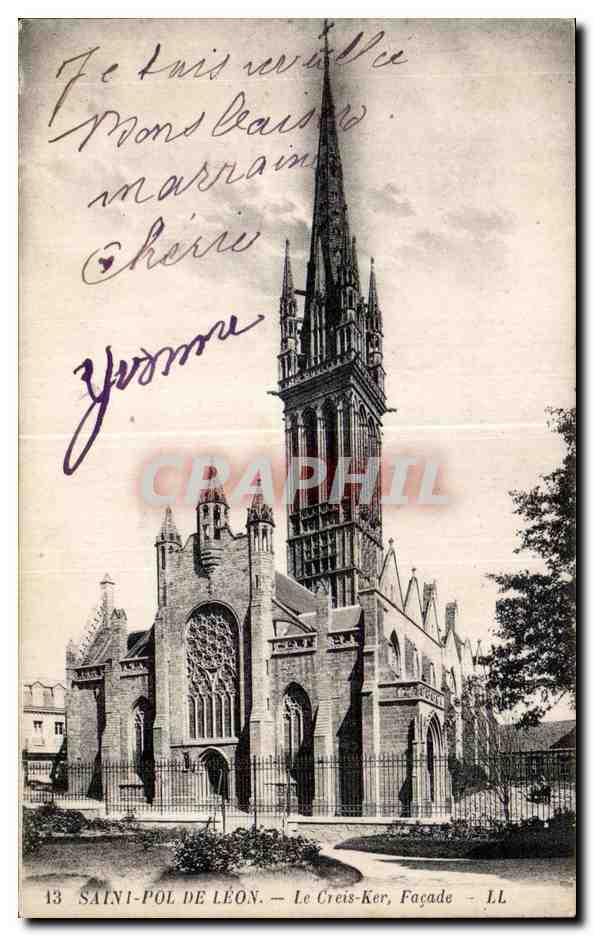 Je tais reveille
Mons baiser
marraine
chérie
Yvonne
CRAPHIL
13 SAINT-POL DE LÉON. — Le Creis-Ker, Façade - LL